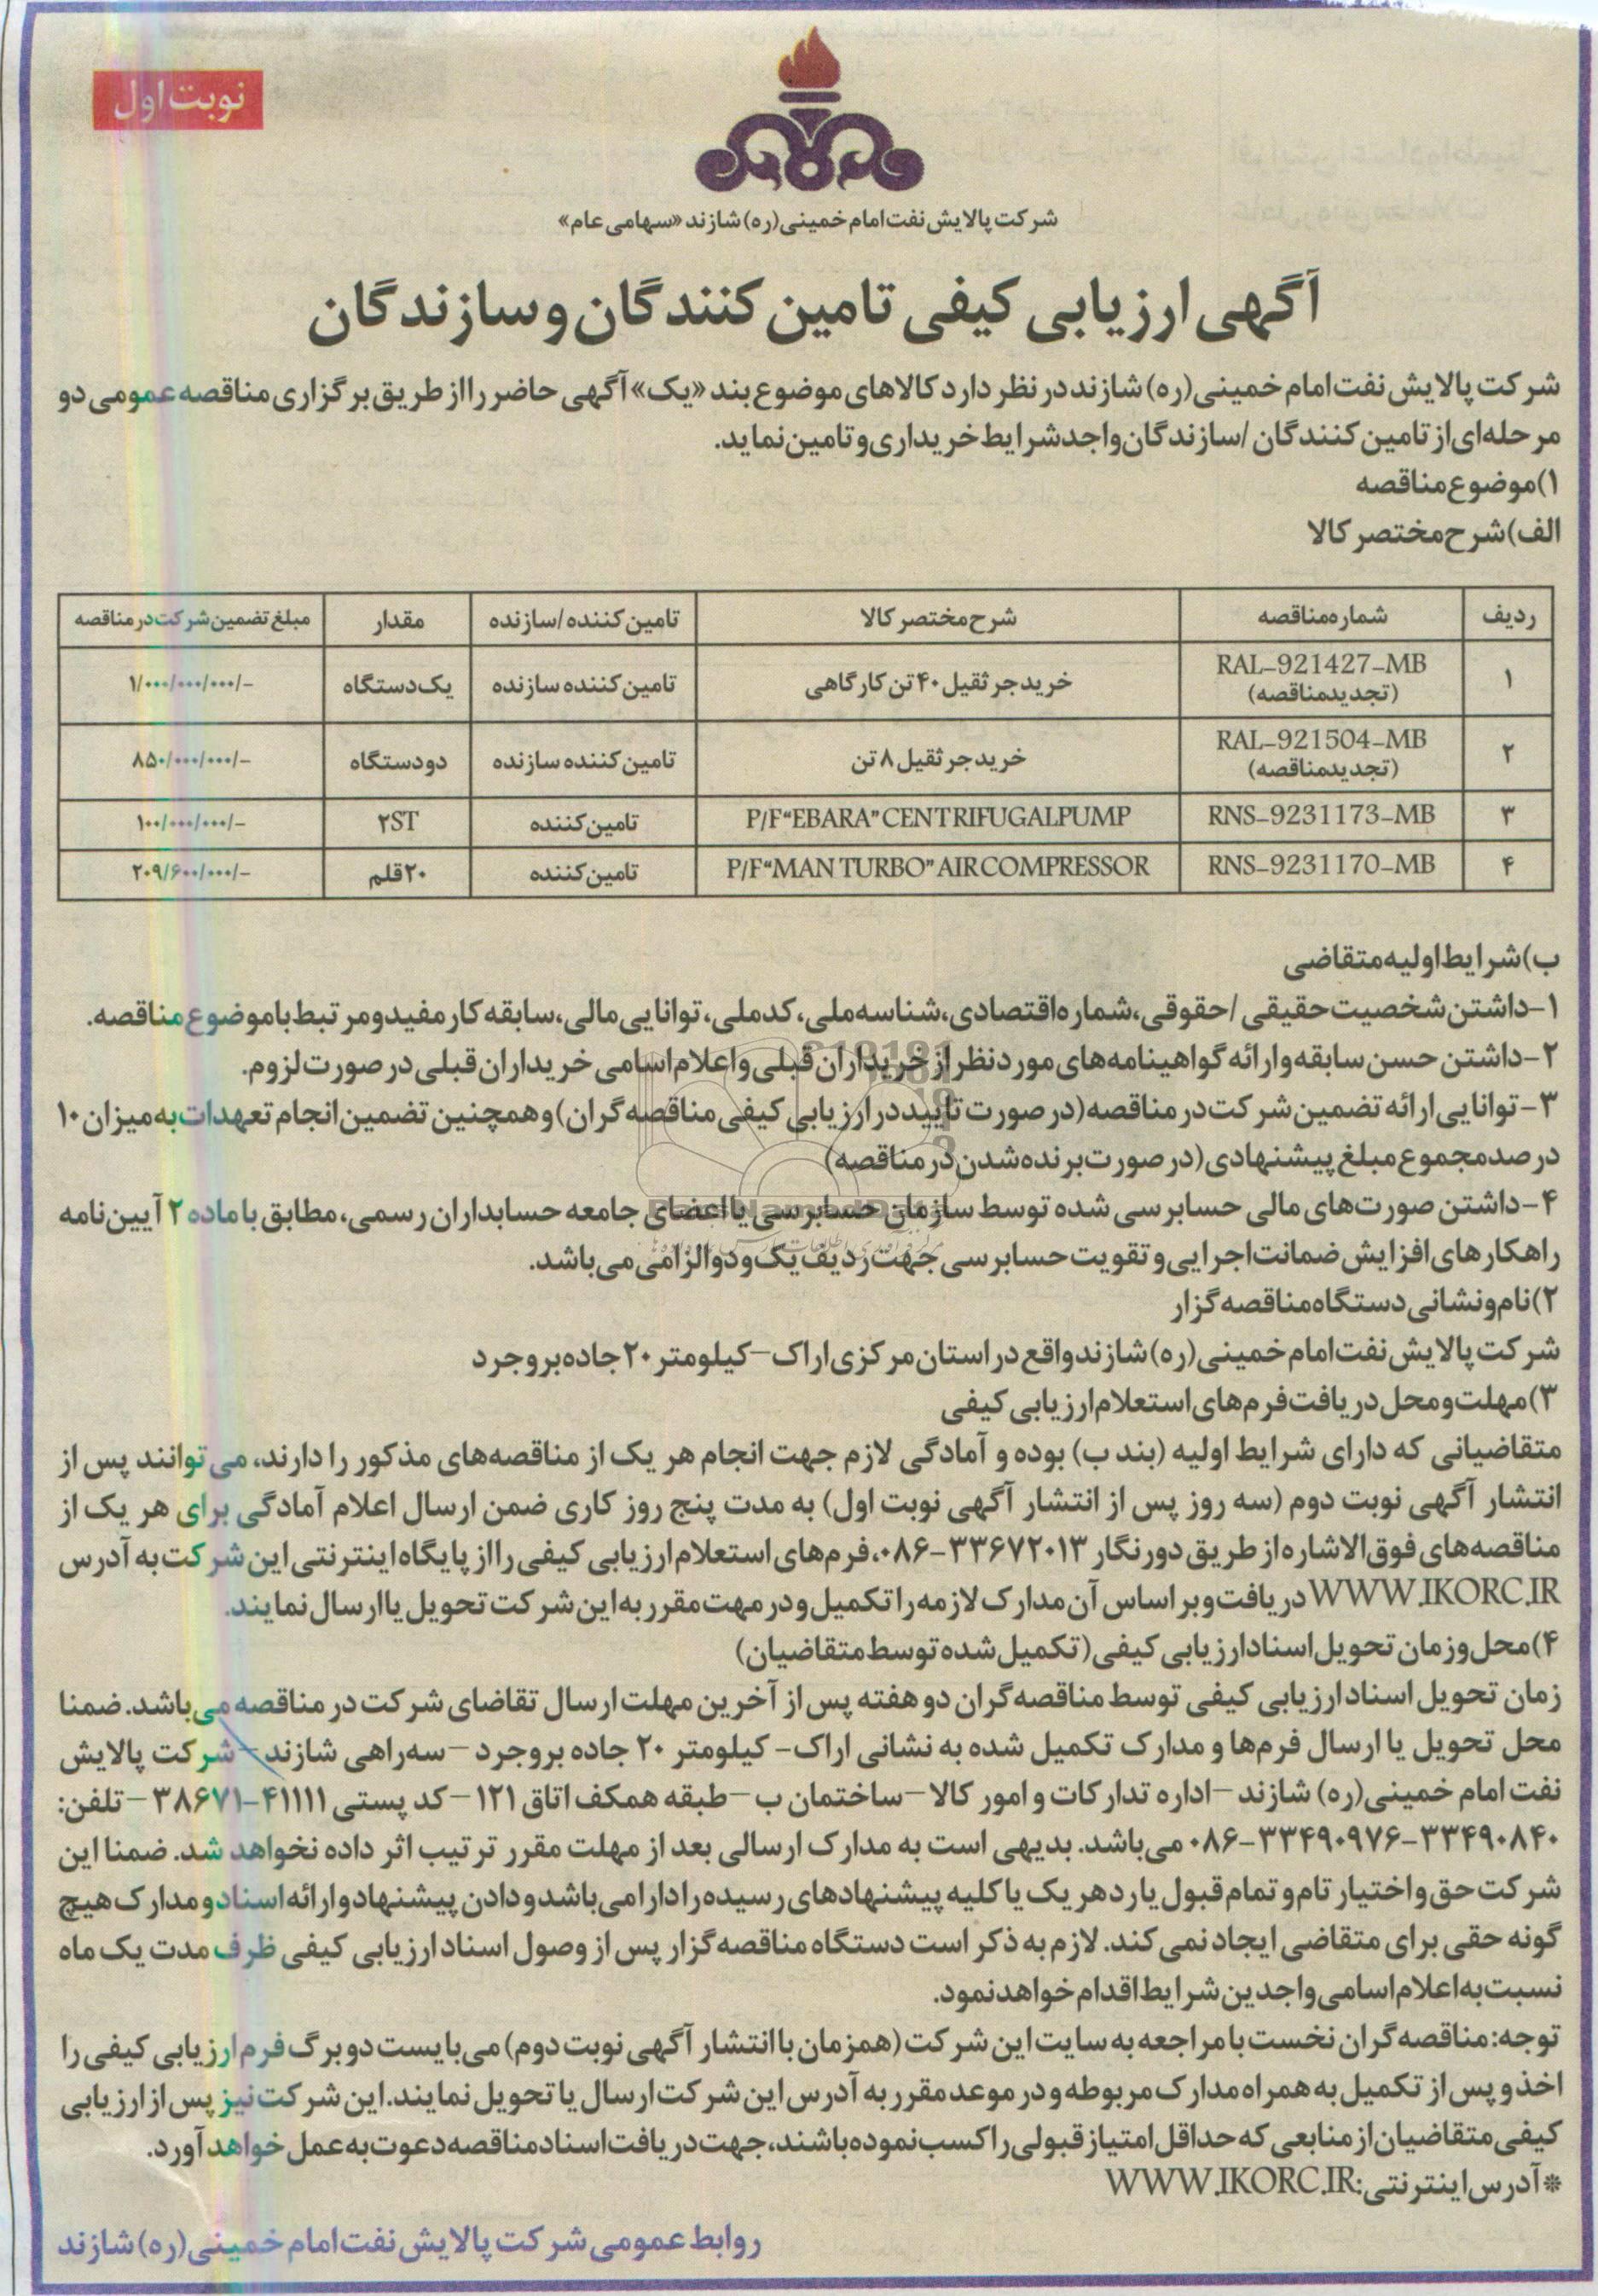 نوبت اول
شرکت پالایش نفت امام خمینی(ره) شازند «سهامی عام»
آگهی ارزیابی کیفی تامین کنندگان و سازندگان
شرکت پالایش نفت امام خمینی(ره) شازند در نظر دارد کالاهای موضوع بند «یک» آگهی حاضر را از طریق برگزاری مناقصه عمومی دو
مرحله‌ای از تامین کنندگان /سازندگان واجد شرایط خریداری و تامین نماید.
۱)موضوع مناقصه
الف)شرح مختصر کالا
ردیف شماره مناقصه شرح مختصر کالا تامین کننده /سازنده مقدار مبلغ تضمین شرکت در مناقصه
۱ RAL-921427-MB (تجدید مناقصه) خرید جرثقیل ۴۰ تن کارگاهی تامین کننده سازنده یک دستگاه ۱/۰۰۰/۰۰۰/۰۰۰/-
۲ RAL-921504-MB (تجدید مناقصه) خرید جرثقیل ۸ تن تامین کننده سازنده دو دستگاه ۸۵۰/۰۰۰/۰۰۰/-
۳ RNS-9231173-MB P/F “EBARA” CENTRIFUGAL PUMP تامین کننده ۲ST ۱۰۰/۰۰۰/۰۰۰/-
۴ RNS-9231170-MB P/F “MAN TURBO” AIR COMPRESSOR تامین کننده ۲۰ قلم ۲۰۹/۶۰۰/۰۰۰/-
ب)شرایط اولیه متقاضی
۱-داشتن شخصیت حقیقی /حقوقی،شماره اقتصادی،شناسه ملی، کد ملی، توانایی مالی،سابقه کار مفید و مرتبط با موضوع مناقصه.
۲-داشتن حسن سابقه و ارائه گواهینامه‌های مورد نظر از خریداران قبلی و اعلام اسامی خریداران قبلی در صورت لزوم.
۳-توانایی ارائه تضمین شرکت در مناقصه(در صورت تایید در ارزیابی کیفی مناقصه گران) و همچنین تضمین انجام تعهدات به میزان ۱۰
درصد مجموع مبلغ پیشنهادی(در صورت برنده شدن در مناقصه)
۴-داشتن صورت‌های مالی حسابرسی شده توسط سازمان حسابرسی یا اعضای جامعه حسابداران رسمی، مطابق با ماده ۲ آیین نامه
راهکارهای افزایش ضمانت اجرایی و تقویت حسابرسی جهت ردیف یک و دو الزامی می باشد.
۲)نام و نشانی دستگاه مناقصه گزار
شرکت پالایش نفت امام خمینی(ره) شازند واقع در استان مرکزی اراک-کیلومتر ۲۰ جاده بروجرد
۳)مهلت و محل دریافت فرم‌های استعلام ارزیابی کیفی
متقاضیانی که دارای شرایط اولیه (بند ب) بوده و آمادگی لازم جهت انجام هر یک از مناقصه‌های مذکور را دارند، می توانند پس از
انتشار آگهی نوبت دوم (سه روز پس از انتشار آگهی نوبت اول) به مدت پنج روز کاری ضمن ارسال اعلام آمادگی برای هر یک از
مناقصه‌های فوق الاشاره از طریق دورنگار ۳۳۶۷۲۰۱۳-۰۸۶، فرم‌های استعلام ارزیابی کیفی را از پایگاه اینترنتی این شرکت به آدرس
WWW.IKORC.IR دریافت و بر اساس آن مدارک لازمه را تکمیل و در مهت مقرر به این شرکت تحویل یا ارسال نمایند.
۴)محل و زمان تحویل اسناد ارزیابی کیفی (تکمیل شده توسط متقاضیان)
زمان تحویل اسناد ارزیابی کیفی توسط مناقصه گران دو هفته پس از آخرین مهلت ارسال تقاضای شرکت در مناقصه می باشد. ضمنا
محل تحویل یا ارسال فرم‌ها و مدارک تکمیل شده به نشانی اراک- کیلومتر ۲۰ جاده بروجرد -سه‌راهی شازند- شرکت پالایش
نفت امام خمینی(ره) شازند -اداره تدارکات و امور کالا -ساختمان ب -طبقه همکف اتاق ۱۲۱ -کد پستی ۴۱۱۱۱-۳۸۶۷۱ -تلفن:
۳۳۴۹۰۸۴۰-۳۳۴۹۰۹۷۶-۰۸۶ می باشد. بدیهی است به مدارک ارسالی بعد از مهلت مقرر ترتیب اثر داده نخواهد شد. ضمنا این
شرکت حق و اختیار تام و تمام قبول یا رد هر یک یا کلیه پیشنهادهای رسیده را دارا می باشد و دادن پیشنهاد و ارائه اسناد و مدارک هیچ
گونه حقی برای متقاضی ایجاد نمی کند. لازم به ذکر است دستگاه مناقصه گزار پس از وصول اسناد ارزیابی کیفی ظرف مدت یک ماه
نسبت به اعلام اسامی واجدین شرایط اقدام خواهد نمود.
توجه: مناقصه گران نخست با مراجعه به سایت این شرکت (همزمان با انتشار آگهی نوبت دوم) می بایست دو برگ فرم ارزیابی کیفی را
اخذ و پس از تکمیل به همراه مدارک مربوطه و در موعد مقرر به آدرس این شرکت ارسال یا تحویل نمایند. این شرکت نیز پس از ارزیابی
کیفی متقاضیان از منابعی که حداقل امتیاز قبولی را کسب نموده باشند، جهت دریافت اسناد مناقصه دعوت به عمل خواهد آورد.
*آدرس اینترنتی: WWW.IKORC.IR
روابط عمومی شرکت پالایش نفت امام خمینی(ره) شازند